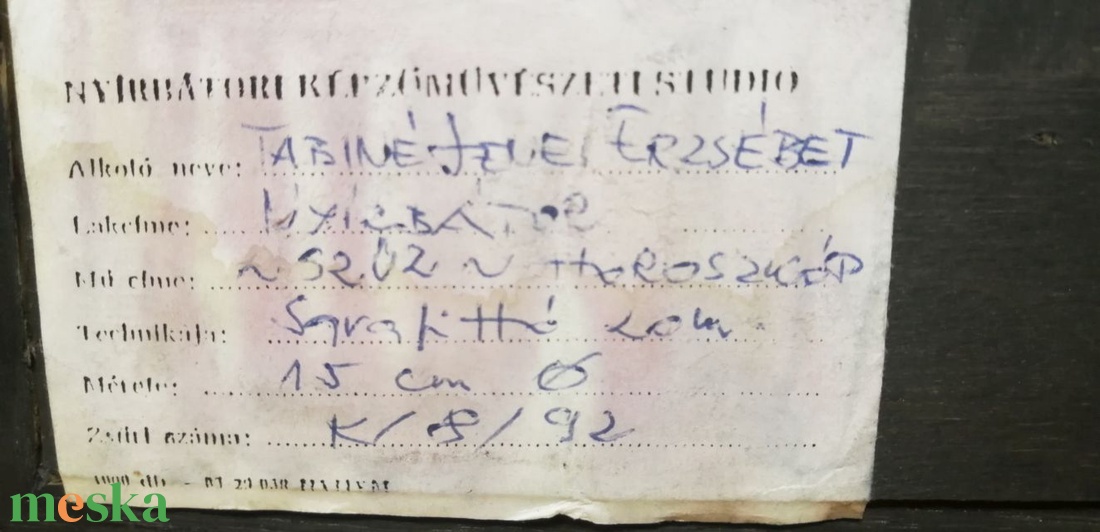 NYÍRBÁTORI KÉPZŐMŰVÉSZETI STUDIÓ
Alkotó neve: TABINÉ JENEI ERZSÉBET
Lakcíme: NYÍRBÁTOR
Mű címe: ~ SZŰZ ~ HOROSZKÓP
Technikája: Sgrafittó zom.
Mérete: 15 cm Ø
Zsűri száma: K/8/92
1000 db.
meska